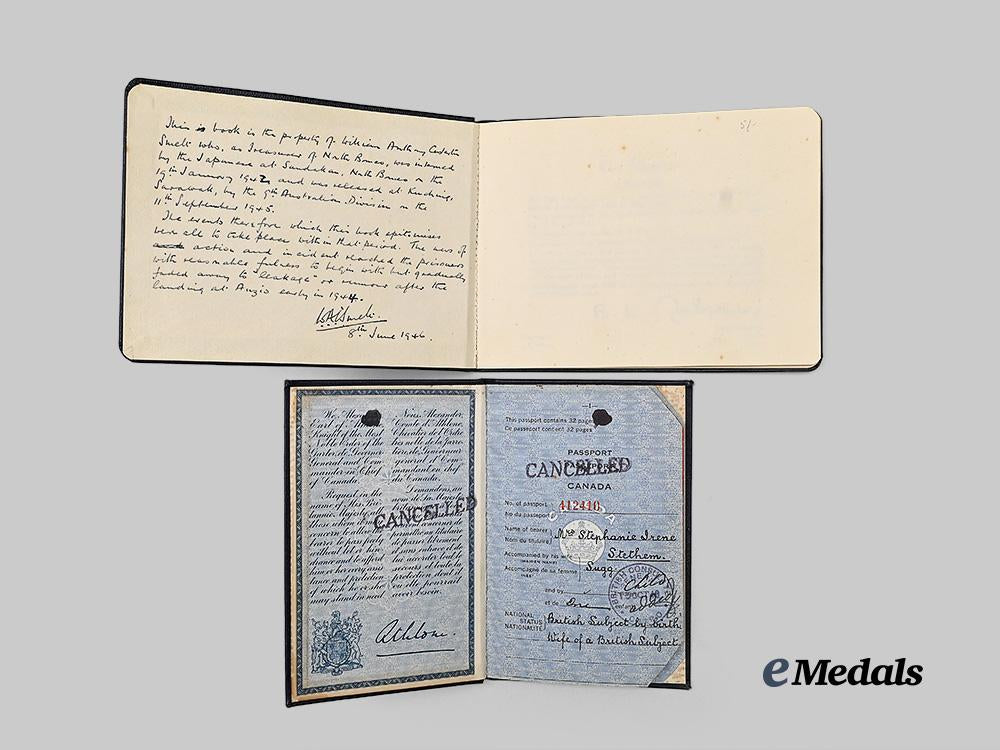 This is book is the property of William Anthony
Smelt who, as Treasurer of North Borneo, was interned
by the Japanese at Sandakan, North Borneo on the
19th January 1942 and was released at Kuching,
Sarawak, by the 9th Australian Division on the
11th September 1945.
The events therefore which this book epitomises
were all to take place within that period. The news of
action and incident reached the prisoners
with reasonable fulness to begin with but gradually
faded away to "leakage" or rumour after the
landing at Anzio early in 1944.
8th June 1946.
5/-
We, Alexander,
Earl of
Knight of the Most
Noble Order of the
Garter, de Governor
General and Com-
mander-in-Chief
of Canada.
Request, in the
name of His Bri-
tannic Majesty, all
those whom it may
concern to allow the
bearer to pass freely
without let or hin-
drance and to afford
him or her every assis-
tance and protection
of which he or she
may stand in need.
Nous, Alexander,
Comte d'Athlone,
Chevalier de l'Ordre
très noble de la Jarre-
tière, de Gouverneur
général et Com-
mandant en chef
du Canada.
Demandons, au
nom de Sa Majesté
concerner de
permettre au titulaire
de passer librement
et sans entrave et de
lui accorder tout le
secours et toute la
protection dont il
ou elle pourrait
avoir besoin.
CANCELLED
Athlone.
—1—
This passport contains 32 pages
Ce passeport contient 32 pages
PASSPORT
CANCELLED
CANADA
No. of passport 412410
No du passeport
Name of bearer Mrs Stephanie Irene
Nom du titulaire Stethem.
Accompanied by his
(MAIDEN NAME)
Accompagné de sa femme Sugg
and by
et de
NATIONAL
STATUS British Subject by birth
NATIONALITÉ
Wife of a British Subject
eMedals